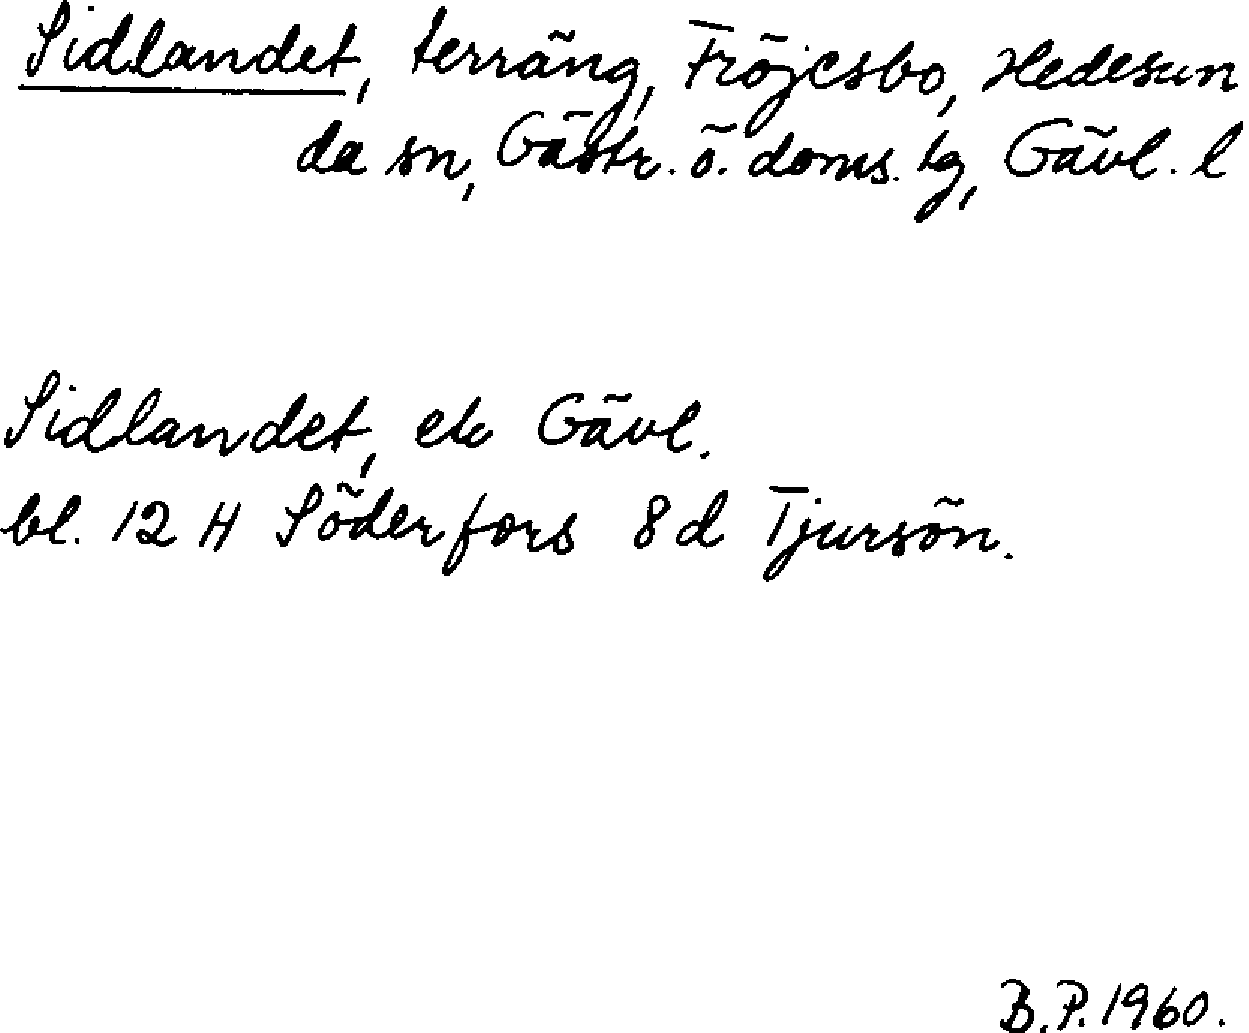 Sidlandet, terräng, Fröjesbo, Hedesun
da sn, Gästr. ö. doms. tg, Gävl. l
Sidlandet, ek Gävl.
bl. 12 H Söderfors 8 d Tjursön.
B.P. 1960.